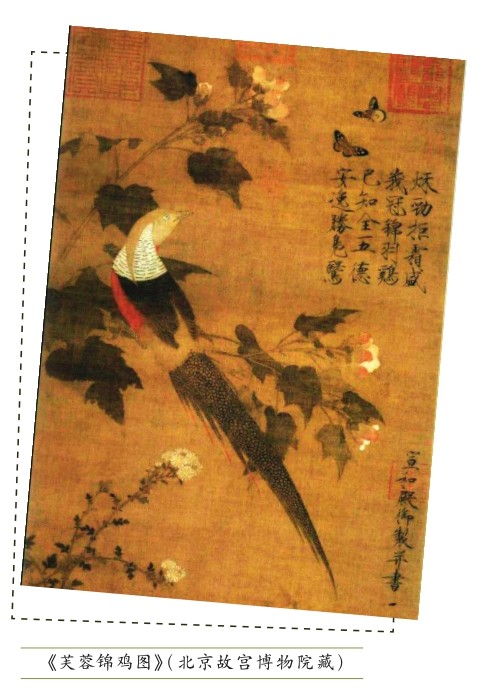 秋勁拒霜盛
峩冠錦羽鷄
已知全五德
安逸勝鳧鷖
宣和殿御製并書
《芙蓉锦鸡图》(北京故宫博物院藏)